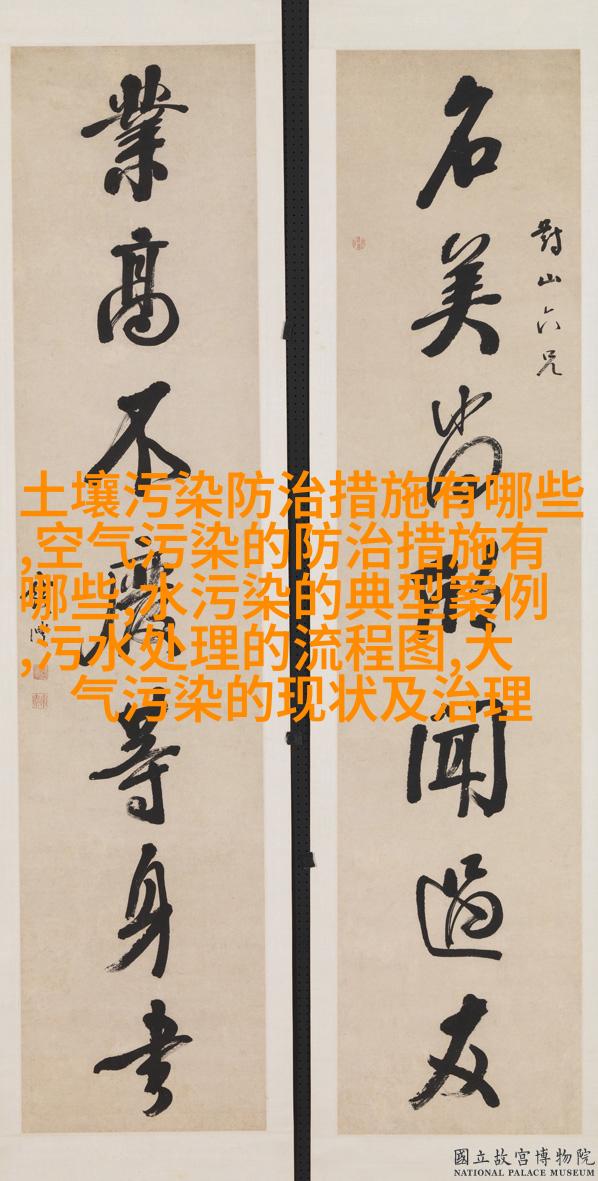 名美尚聞過友
對山六兄
業高不廢等身書
土壤污染防治措施有哪些
,空气污染的防治措施有
哪些,水污染的典型案例
,污水处理的流程图,大
气污染的现状及治理
國立故宮博物院
NATIONAL PALACE MUSEUM